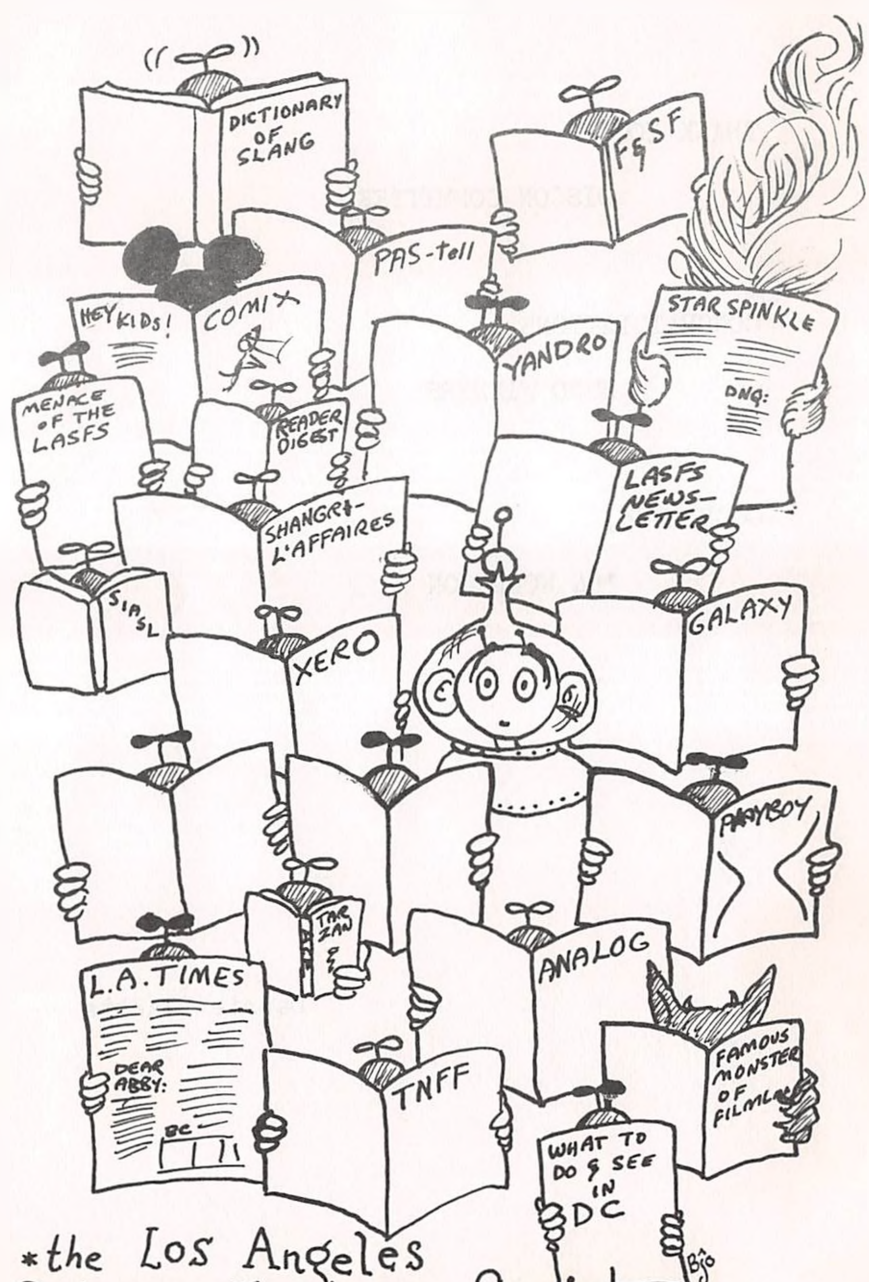 DICTIONARY
OF
SLANG
F&SF
PAS-tell
HEY KIDS!
COMIX
STAR SPINKLE
DNQ:
YANDRO
MENACE
OF THE
LASFS
READER
DIGEST
LASFS
NEWS-
LETTER
SHANGRI-
L'AFFAIRES
SIASL
GALAXY
XERO
PLAYBOY
TAR
ZAN
ACE
ANALOG
L.A. TIMES
DEAR
ABBY:
BC
FAMOUS
MONSTER
OF
TNFF
WHAT TO
DO & SEE
IN
DC
Bjo
*the Los Angeles